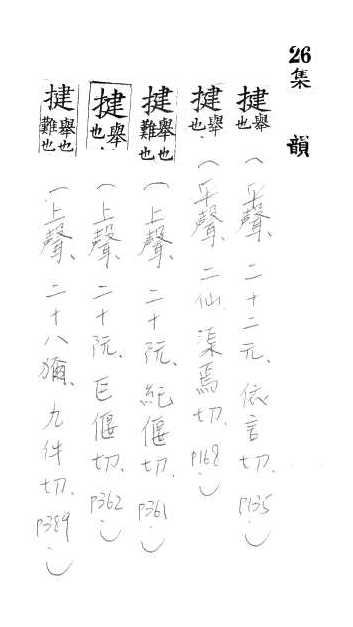 26集 韻
揵舉也（平聲、二十二元、依言切、P135）
揵舉也（平聲、二仙、渠焉切、P168）
揵舉也難也（上聲、二十阮、紀偃切、P361）
揵舉也（上聲、二十阮、巨偃切、P362）
揵舉也難也（上聲、二十八獮、九件切、P389）